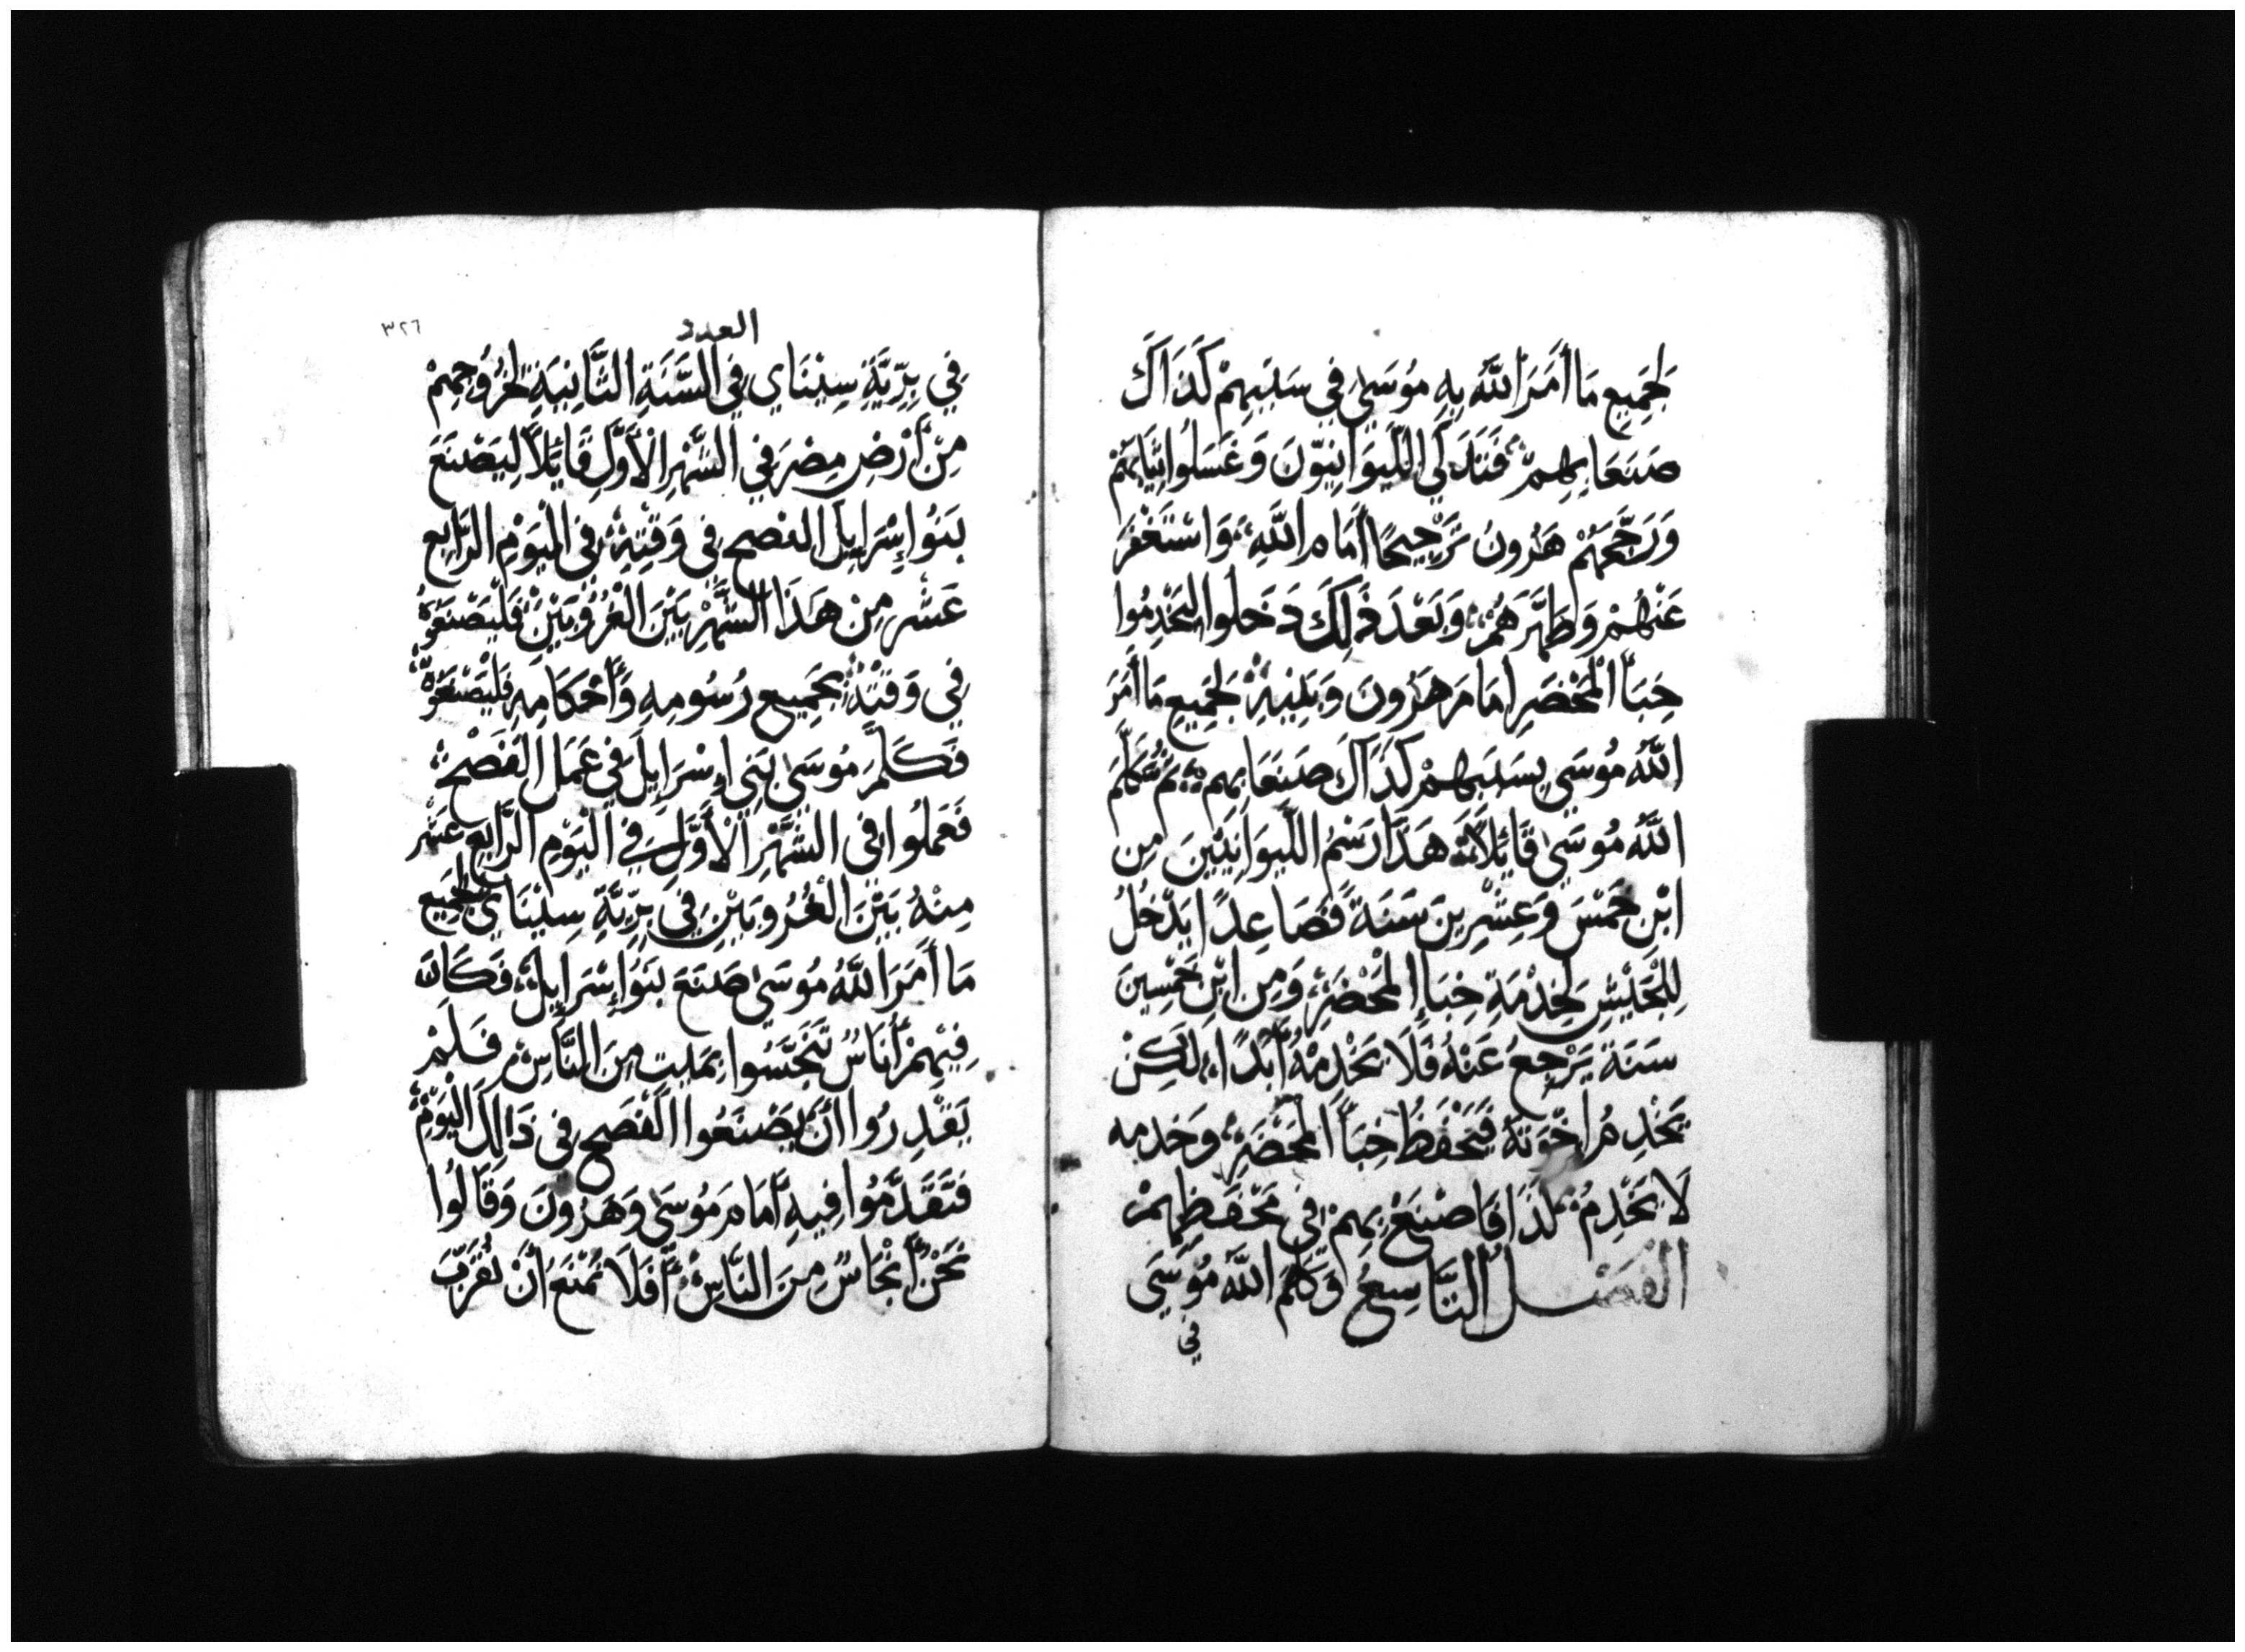 لِجَمِيعِ مَا أَمَرَ اللَّهُ بِهِ مُوسَى فِي سَبَبِهِمْ كَذَاكَ
صَنَعَا بِهِمْ فَتَذَكَّى اللِّيوَانِيّونَ وَغَسَلُوا ثِيَابَهُمْ
وَرَجَّحَهُمْ هَرُونُ تَرْجِيحًا أَمَامَ اللَّهِ وَاسْتَغْفَرَ
عَنْهُمْ وَطَهَّرَهُمْ وَبَعْدَ ذَلِكَ دَخَلُوا لِيَخْدِمُوا
خِبَأَ الْمَحْضَرِ أمَامَ هَرُونَ وَبَنِيهِ لِجَمِيعِ مَا أَمَرَ
اللَّهُ مُوسَى بِسَبَبِهِمْ كَذَاكَ صَنَعَا بِهِم ثُمَّ كَلَّمَ
اللَّهُ مُوسَى قَائِلاً هَذَا رَسْمُ اللِّيوَانِيِّينَ مِن
ابْنِ خَمْسَ وَعِشْرِينَ سَنَةً فَصَاعِدًا يَدْخُلُ
لِلْجَيْشِ لِخِدْمَةِ خِبَاءِ الْمَحْضَرِ وَمِن ابْنِ خَمْسِينَ
سَنَة يَرْجِعُ عَنْهُ فَلَا يَخْدِمْهُ أَبَدًا لَكِنْ
يَخْدِمُ اخْوَتَهُ فَيَحْفَظُ خِبَأَ الْمَحْضَرِ وَخدمه
لَا يَخْدِمُ لَذَا فَاصْنَعْ بِهِمْ فِي مَحْفَظِهِمْ
الفَصْلُ التَّاسِعُ وَكَلَّمَ اللَّهُ مُوسَى
في
٣٢٦
العدد
فِي بِرِّيَّةِ سِيْنَاي فِي السَّنَةِ الثَّانِيَةِ لِخُرُوجِهِمْ
مِنْ أَرْضِ مِصْرَ فِي الشَّهْرِ الْأَوَّلِ قَائِلاً لِيَصْنَعَ
بَنُوا إِسْرَايِلَ الفصح فِي وَقْتِهِ فِي الْيَوْمِ الرَّابِع
عَشَر مِن هَذَا الشَّهْرِ بَيْنَ الْغُرُوبَيْنِ فَلْيَصْنَعُوهُ
فِي وَقْتِهِ بِجَمِيعِ رُسُومِهِ وَأَحْكَامِهِ فَلْيَصْنَعُوهُ
فَكَلَّمَ مُوسَى بَنِي إِسْرَايِلَ فِي عَمَلِ الفَصْحِ
فَعَمَلُوا فِي الشَّهْرِ الْأَوَّلِ فِي الْيَوْمِ الرَّابِعِ عَشَر
مِنْهُ بَيْنَ الْغُرُوبَيْنِ فِي بَرِّيَّةِ سِيْنَاي لِجَمِيعِ
مَا أَمَرَ اللَّهُ مُوسَى صَنَعَ بَنُوا إِسْرَايِلَ فَكَانَ
فِيهِمْ أُنَاسٌ تَنَجَّسُوا بِمَيتٍ مِنَ النَّاسِ فَلَمْ
يَقْدِرُوا أَنْ يَصْنَعُوا الفَصح فِي ذَالِكَ الْيَوْمِ
فَتَقَدَّمُوا فِيهِ أَمَامَ مُوسَى وَهَرُونَ وَقَالُوا
نَحْنُ أَنْجَاسٌ مِنَ النَّاسِ أَفَلَا نُمْنَعُ أَنْ نُقَرِّبَ